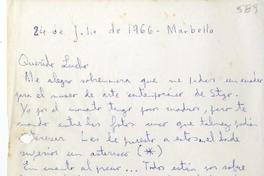 589
24 de Julio de 1966 - Marbella
Querido Lucho
Me alegro sobremanera que me pidas un cuadro
para el museo de arte contemporáneo de Stgo.
Yo por el momento tengo pocos cuadros, pero te
mando entre las fotos unos que talvez podrían
interesar. Les he puesto a estos en el dorso
un asterisco (*)
En cuanto al precio... Todos están por sobre